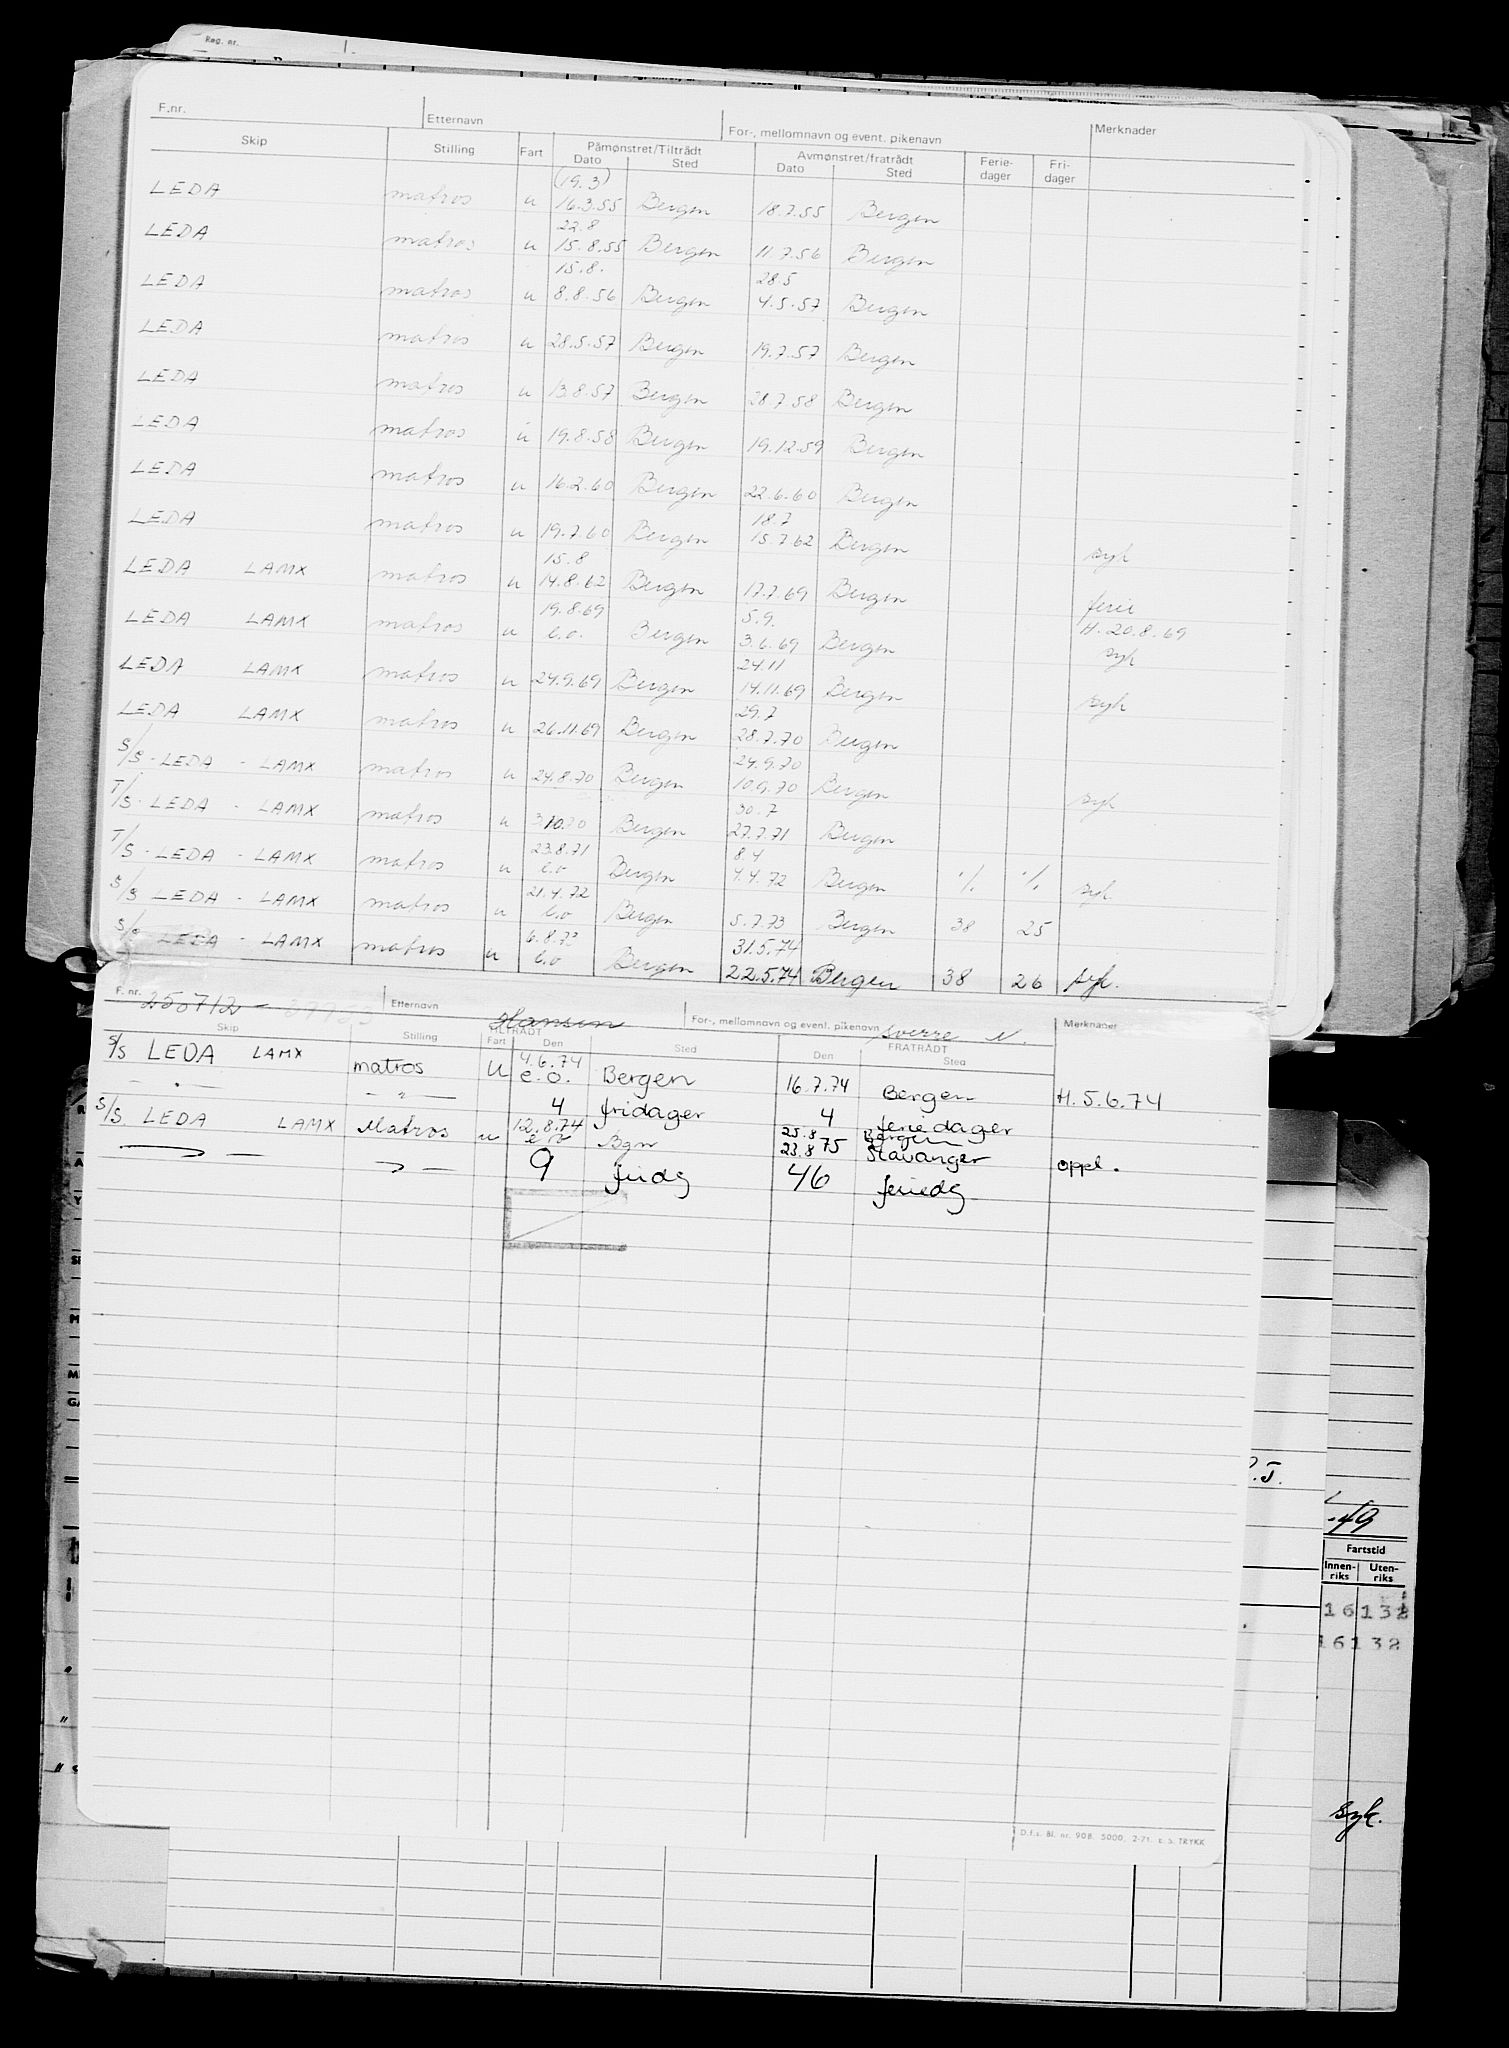 Reg. nr.
F.nr. Etternavn For-, mellomnavn og event. pikenavn Merknader
Skip Stilling Fart Påmønstret/Tiltrådt Dato Sted Avmønstret/fratrådt Dato Sted Ferie-dager Fri-dager
(19.3)
LEDA matros u 16.3.55 Bergen 18.7.55 Bergen
22.8
LEDA matros u 15.8.55 Bergen 11.7.56 Bergen
15.8. 28.5
LEDA matros u 8.8.56 Bergen 4.5.57 Bergen
LEDA matros u 28.5.57 Bergen 19.7.57 Bergen
LEDA matros u 13.8.57 Bergen 28.7.58 Bergen
LEDA matros u 19.8.58 Bergen 19.12.59 Bergen
LEDA matros u 16.2.60 Bergen 22.6.60 Bergen
18.7
LEDA matros u 19.7.60 Bergen 15.7.62 Bergen syk
15.8
LEDA LAMX matros u 14.8.62 Bergen 17.7.69 Bergen ferie
19.8.69 5.9. H. 20.8.69
LEDA LAMX matros u e.o. Bergen 3.6.69 Bergen syk
24.11
LEDA LAMX matros u 24.9.69 Bergen 14.11.69 Bergen syk
29.7
LEDA LAMX matros u 26.11.69 Bergen 28.7.70 Bergen
24.9.70
S/S - LEDA - LAMX matros u 24.8.70 Bergen 10.9.70 Bergen syk
30.7
T/S - LEDA - LAMX matros u 3.10.70 Bergen 27.7.71 Bergen
23.8.71 8.4
T/S - LEDA - LAMX matros u e.o Bergen 4.4.72 Bergen ·/. ·/. syk
21.4.72
S/S LEDA - LAMX matros u e.o Bergen 5.7.73 Bergen 38 25
6.8.73 31.5.74
S/S LEDA - LAMX matros u e.o Bergen 22.5.74 Bergen 38 26 syk.
F. nr. 250712 - Etternavn Hansen For-, mellomnavn og event. pikenavn Sverre N. Merknader
Skip Stilling Fart TILTRÅDT Den Sted FRATRÅDT Den Sted
4.6.74
S/S LEDA LAMX matros U e.o. Bergen 16.7.74 Bergen H. 5.6.74
— " — — " — 4 fridager 4 feriedager
12.8.74 25.8 Bergen
S/S. LEDA LAMX Matros u e o Bgn 23.8 75 Stavanger oppl.
9 fridg 46 feriedg
D.f.s. Bl. nr. 908. 5000. 2-71. E. S. TRYKK
49
Fartstid
Innen-riks Uten-riks
16132
16132
syk.